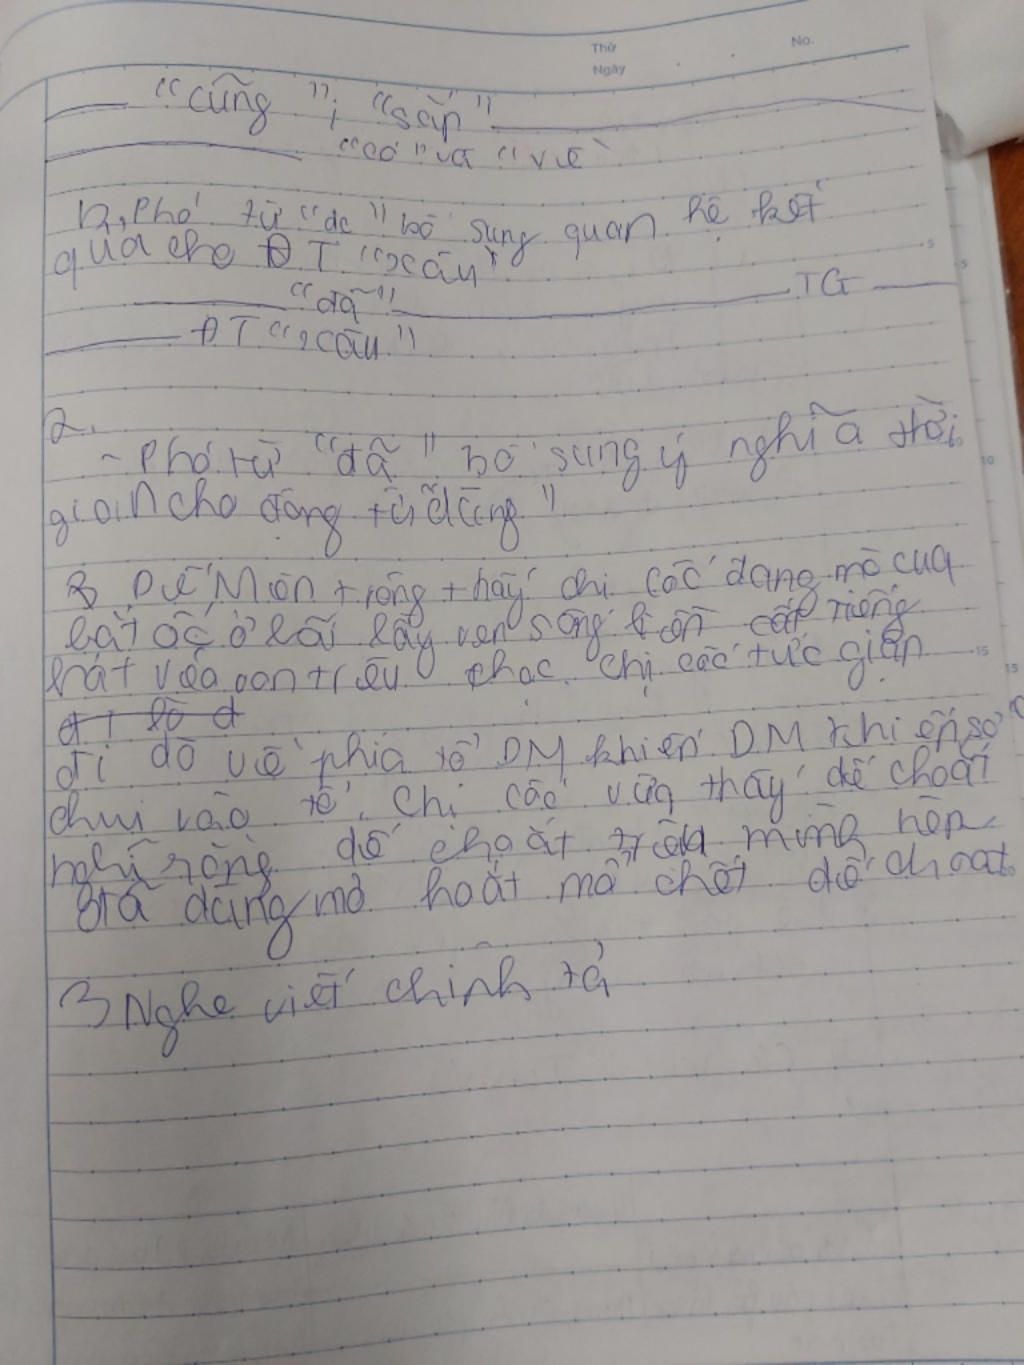 Thứ
Ngày
No.
"cũng"; "sắp"
"có" và "về"
b, Phó từ "đc" bổ sung quan hệ kết
quả cho ĐT "xâu"
"đã" TG
ĐT "xâu"
2.
- Phó từ "đã" bổ sung ý nghĩa thời
gian cho động từ "dùng"
3 Dế Mèn trông thấy chị Cốc đang mò cua
bắt ốc ở bãi lầy ven sông liền cất tiếng
hát véo von trêu chọc. chị cốc tức giận
đi dò về phía tổ DM khiến DM khiến sợ
chui vào tổ. Chị cốc vừa thấy dế choắt
nghĩ rằng dế choắt trêu mình nên
đã dáng mỏ hoắt mổ chết dế choắt
3 Nghe viết chính tả